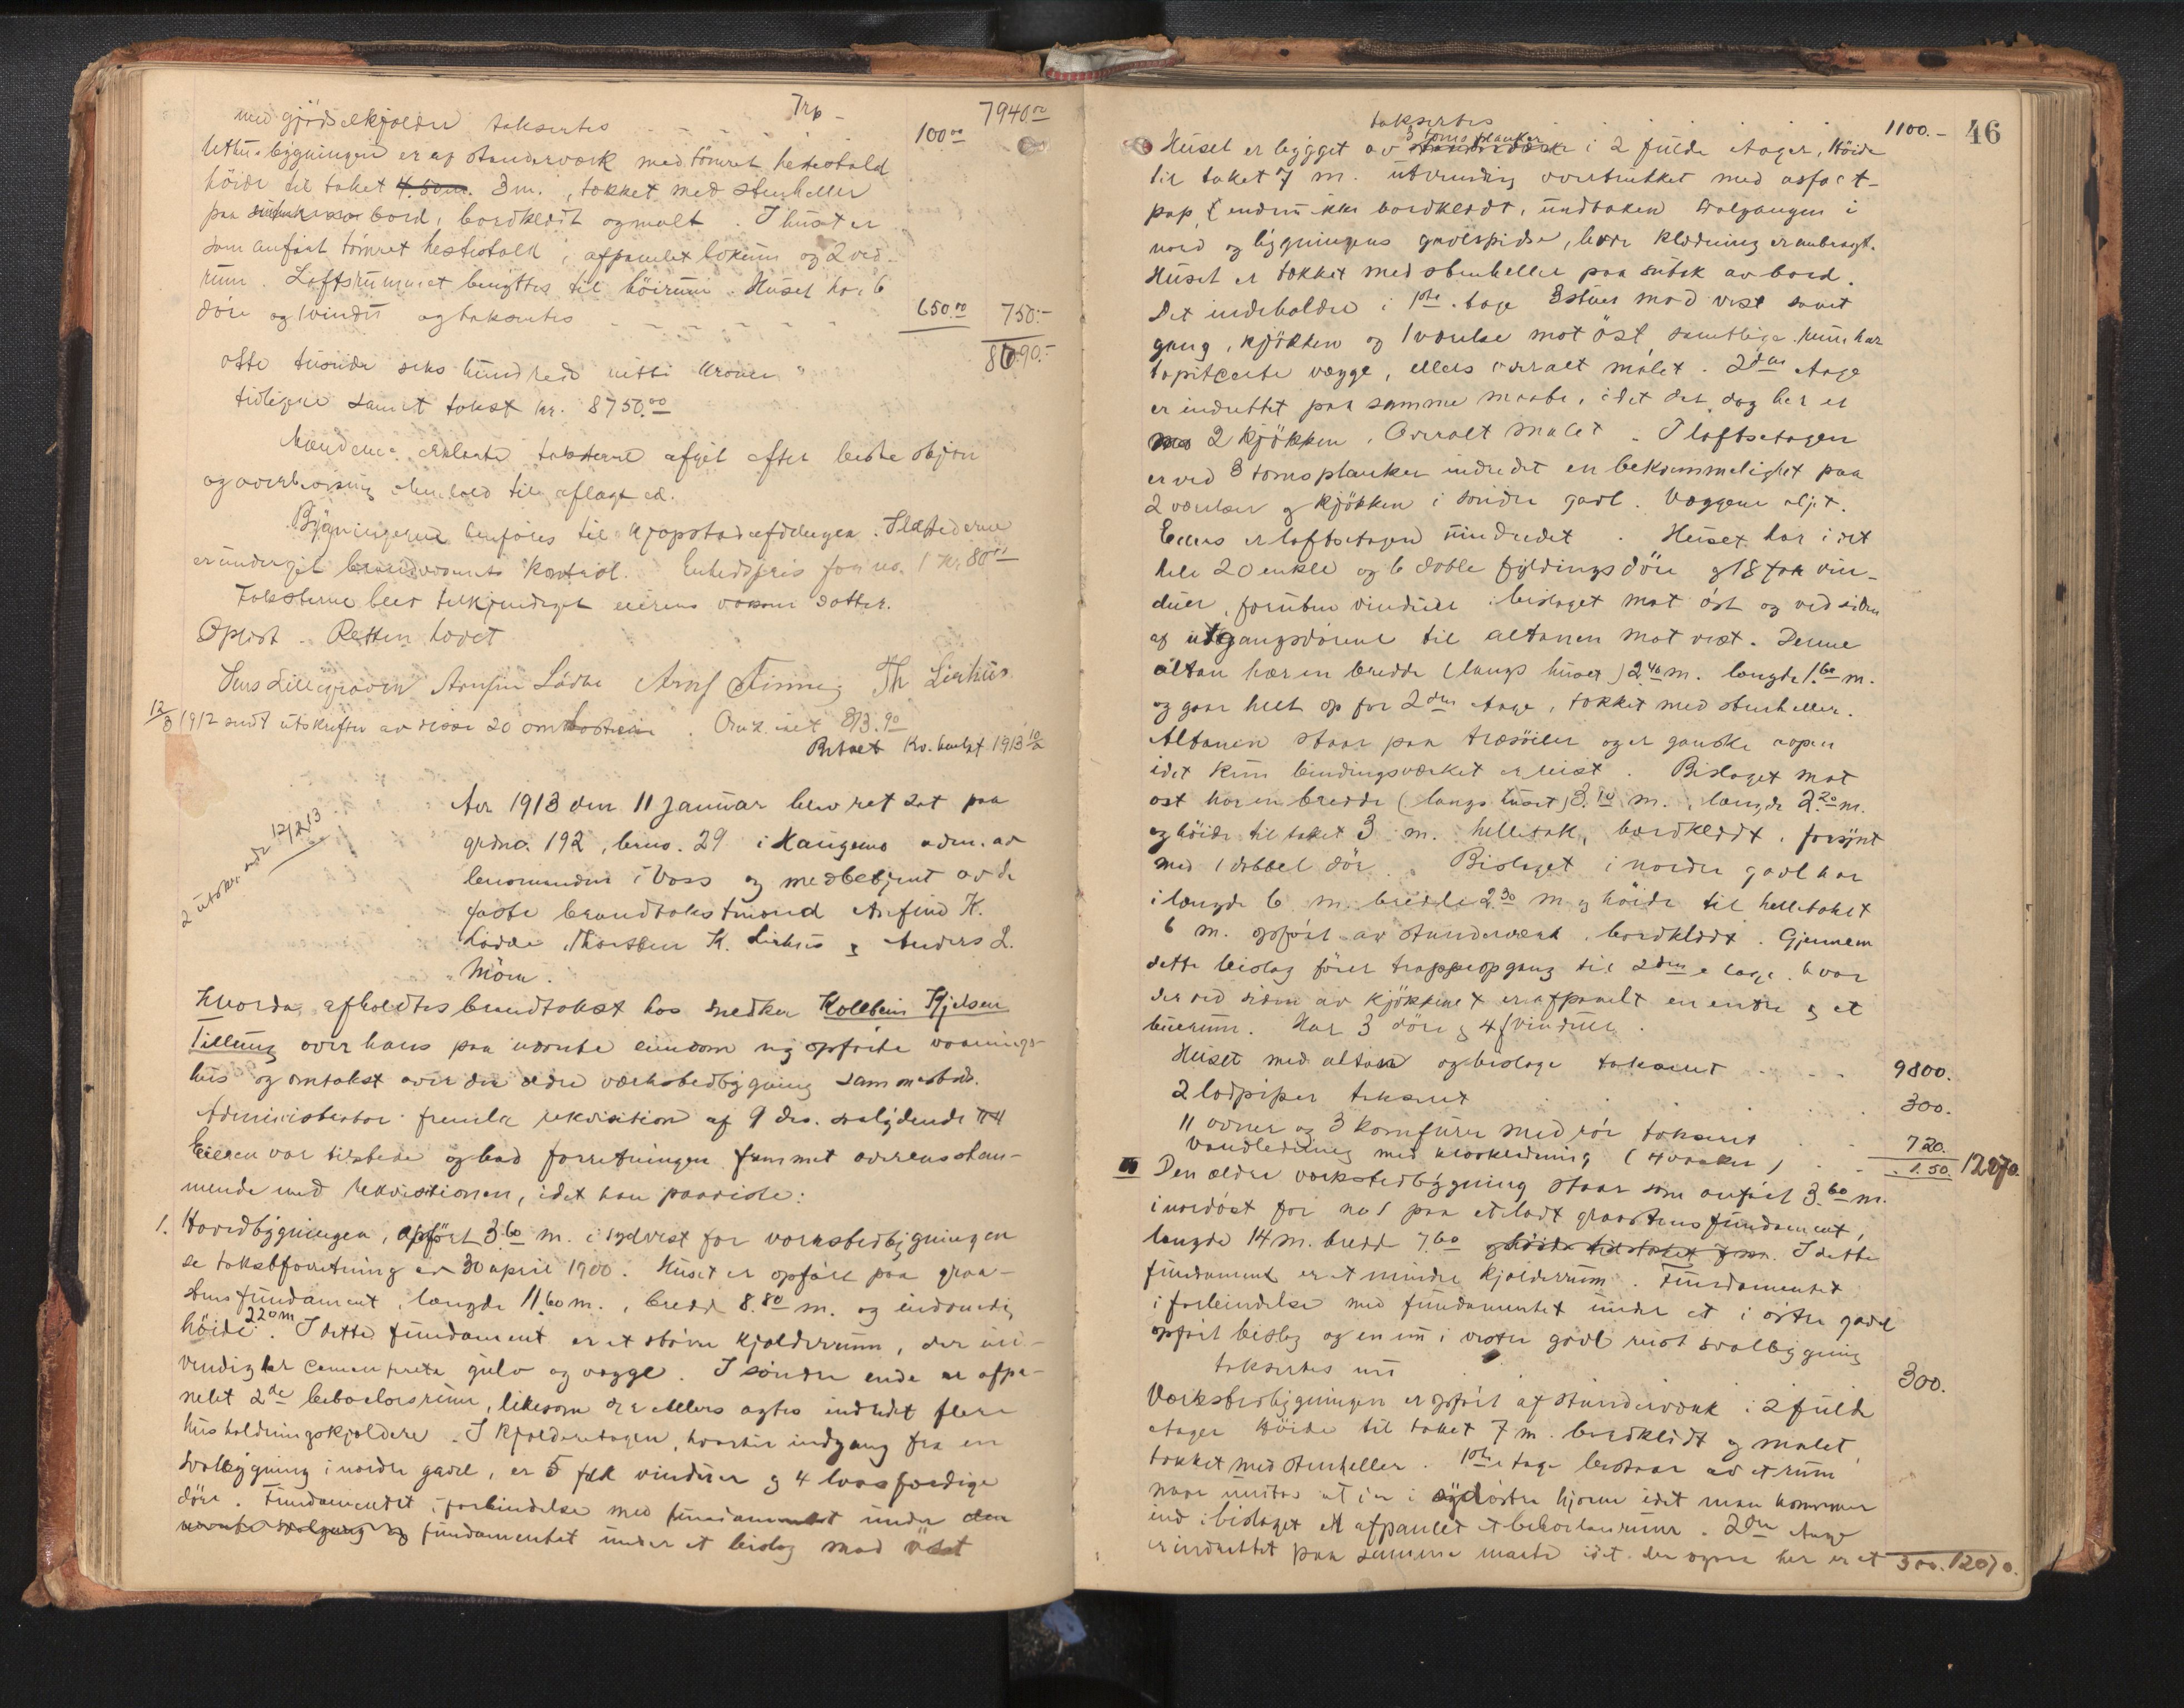 Trp - 7940.00
med gjödselkjælder takseres - - - - 100.00
Uthusbygningen er af stenderværk med tömret hestestald
höide til taket 3 m., tækket med stenheller
paa bord, bordklædt og malt. I huset er
som anfört tömret hestestald, afpanelet lokum og 2 ved-
rum. Loftsrummet benyttes til höirum. Huset har 6
döre og 1 vindu og takseres - - - - 650.00 750.-
8690.-
otte tusinde seks hundrede nitti kroner
tidligere samlet takst kr. 8750.00
Mændene erklærte taksterne afgit efter beste skjøn
og overbevisning i henhold til aflagt ed.
Bygningerne henföres til kjøpstadafdelingen. Ildstederne
er undergit brandvæsenets kontrol. Enhedspris for no. 1 kr. 80.00
Taksterne blev tilkjendegit eierens voksne datter.
Oplæst. Retten hævet
Jens Lillegraven Arnfin Lödve Arnf Finne Th Lirhus
12/3 1912 sendt utskrifter av disse 20 omkostn. Omk. inet 813.90
Betalt Kv. bevist 1913 10/2
2 utskr. sendt 12/2 13
Aar 1913 den 11 januar blev ret sat paa
grdno. 192, brno. 29 i Haugamo adm. av
lensmanden i Voss og medbetjent av de
faste brandtakstmænd Arnfind K.
Lödve, Thorstein K. Lirhus og Anders L.
Möen.
Hvorda afholdtes brandtakst hos snedker Kolbein Kjelsen
Tillung over hans paa nævnte eiendom ny opförte vaanings-
hus og omtakst over den ældre værkstedbygning sammesteds.
Administrator fremla rekvisition af 9 ds. saalydende
Eieren var tilstede og bad forretningen fremmet overensstem-
mende med rekvisitionen, idet han paaviste:
1. Hovedbygningen, opfört 3.60 m. i sydvest for værkstedbygningen
se takstforretning av 30 april 1900. Huset er opfört paa graa-
stensfundament, længde 11.60 m., bredde 8.80 m. og indvendig
höide 2.20 m. I dette fundament er et större kjælderrum, der ind-
vendig har cementerte gulv og vægge. I söndre ende er afpa-
nelet 2de beboelsesrum, likesom der ellers agtes indredet flere
husholdningskjeldere. I kjælderetagen, hvortil indgang fra en
svalbygning i nordre gavl, er 5 fák vinduer og 4 laasfærdige
döre. Fundamentet i forbindelse med fundamentet under den
nævnte svalgang og fundamentet under et bislag mod öst
takseres 1100.- 46
Huset er bygget av 3 toms planker i 2 fulde etager, Höide
til taket 7 m. utvendig overtrukket med asfalt-
pap, endnu ikke bordklædt, undtaken svalgangen i
nord og bygningens gavlspidse, hvor klædning er anbragt.
Huset er tækket med stenheller paa sutak av bord.
Det indeholder i 1ste etage 3 stuer mod vest samt
gang, kjökken og 1 værelse mot öst samtlige rum har
tapitserte vægge, ellers overalt malet. 2den etage
er indrettet paa samme maate, idet der dog her er
2 kjökken. Overalt malet. I loftsetagen
er ved 3 toms planker indredet en bekvemmelighet paa
2 værelser og kjökken i söndre gavl. Væggene oljet.
Ellers er loftsetagen uindredet. Huset har i det
hele 20 enkle og 6 doble fyldingsdöre og 18 fak vin-
duer, foruten vinduer i bislaget mot öst og ved siden
af utgangsdörene til altanen mot vest. Denne
altan har en bredde (langs huset) 2.40 m. længde 1.60 m.
og gaar helt op for 2den etage, tækket med stenheller.
Altanen staar paa træsöiler og er ganske aapen
idet kun bindingsverket er reist. Bislaget mot
öst har en bredde (langs huset) 3.10 m., længde 2.20 m.
og höide til taket 3 m. helletak, bordklædt, forsynt
med 1 dobbel dör. Bislaget i nordre gavl har
i længde 6 m. bredde 2.30 m. og höide til helletaket
6 m. opfört av stenderværk, bordklædt. Gjennem
dette bislag förer trappeopgang til 2den etage. hvor
der ved siden av kjökkenet er afpanelt en entre og et
buerum. Har 3 döre og 4 f vinduer.
Huset med altan og bislage taksert - - - - 9800.
2 lodpiper taksert - - - 300.
11 ovner og 3 komfurer med rör taksert - - 720.
vandledning med kloakledning (4 vasker) - - 150. 12070.
II Den ældre værkstedbygning staar som anfört 3.60 m.
i nordöst for no 1 paa et lodt graastensfundament,
længde 14 m. bredde 7.60 og höide til taket 7 m. I dette
fundament er et mindre kjælderrum. Fundamentet
i forbindelse med fundamentet under et i östre gavl
opfört bislag og en nu i vestre gavl reist svalbygning
takseres nu 300.
Værkstedbygningen er opfört af stenderværk i 2 fulde
etager höide til taket 7 m. bordklædt og malet
tækket med stenheller. 1ste etage bestaar av et rum
naar undtas at der i sydöstre hjörne idet man kommer
ind i bislaget er afpanelet et beboelsesrum. 2den etage
er indrettet paa samme maate idet der ogsaa her er et 300. 12070.